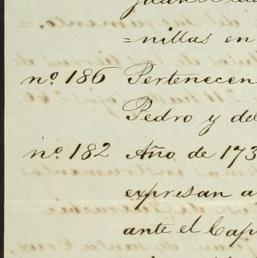 =nillas en
nº 186 Pertenecen
Pedro y de
nº 182 Año de 173
expresan a
ante el Cap